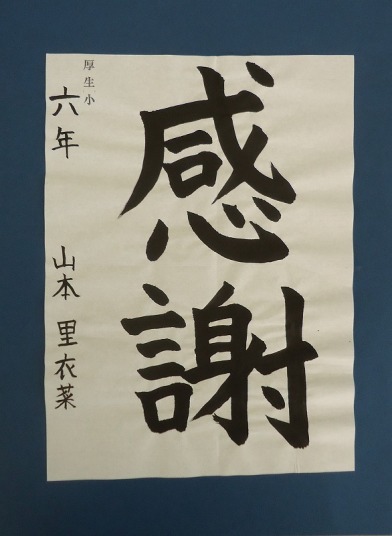 感謝
厚生小
六年 山本 里衣菜